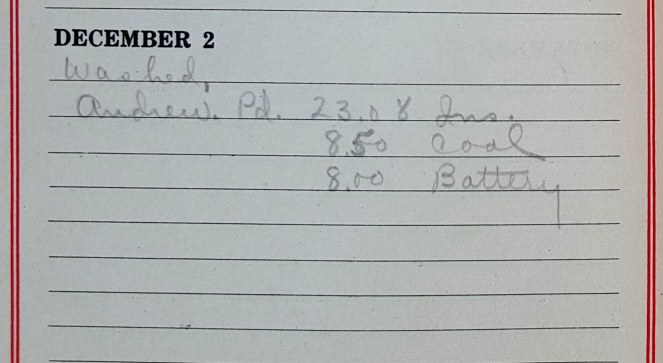 DECEMBER 2
Washed,
Andrew. Pd. 23.08 Ins.
8.50 Coal
8.00 Battery